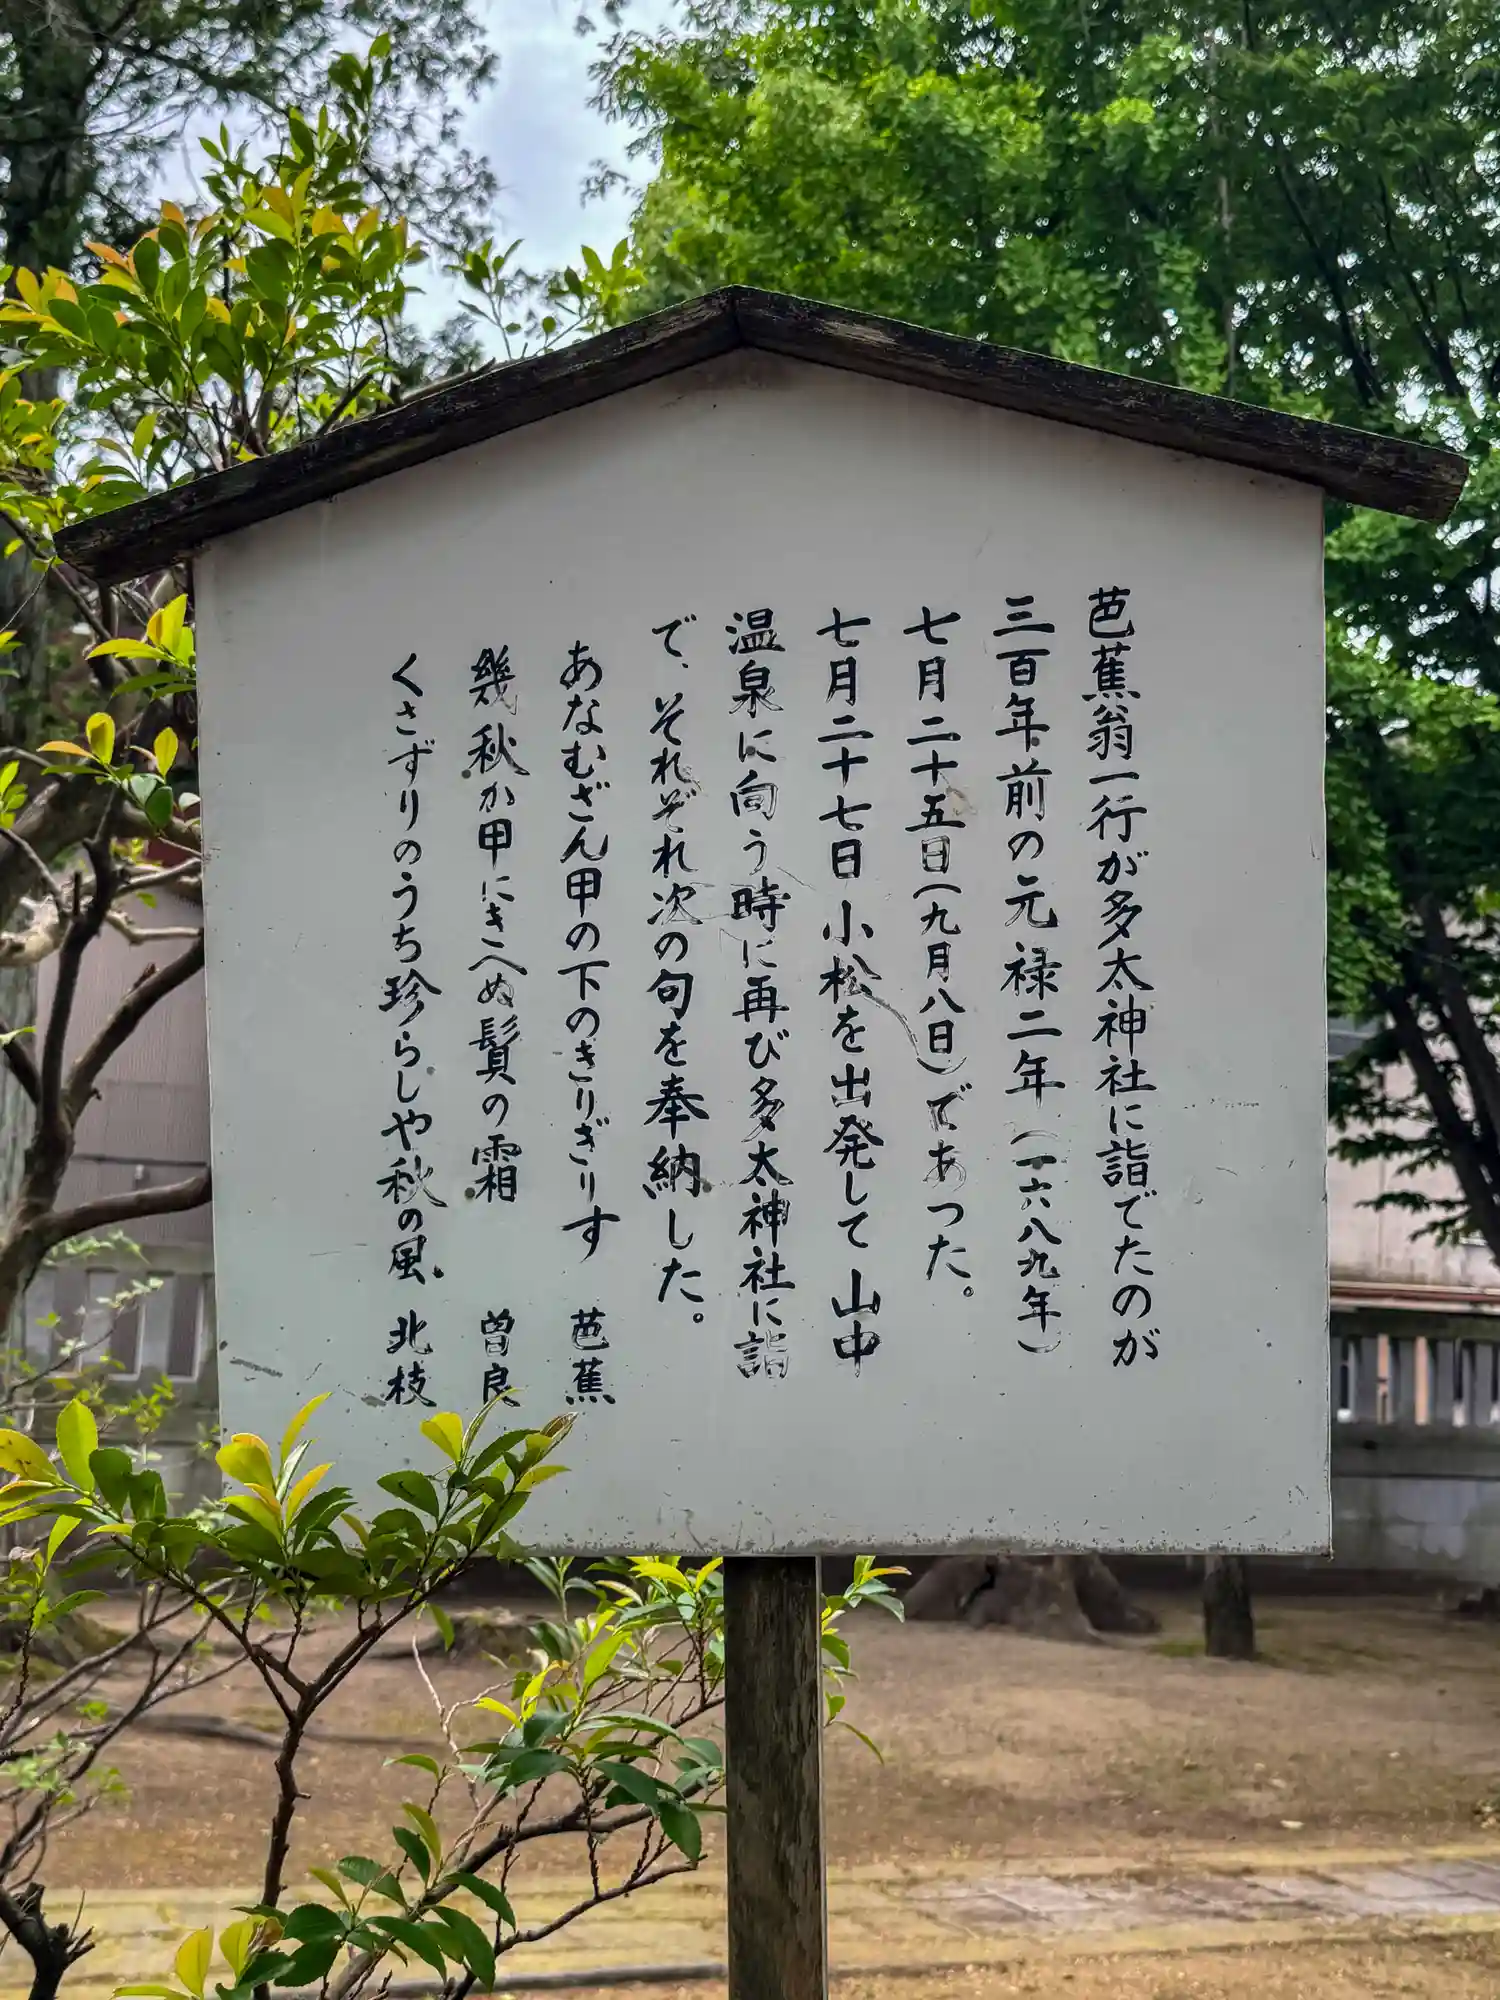 芭蕉翁一行が多太神社に詣でたのが
三百年前の元禄二年(一六八九年)
七月二十五日(九月八日)であつた。
七月二十七日小松を出発して山中
温泉に向う時に再び多太神社に詣
で、それぞれ次の句を奉納した。
あなむざん甲の下のきりぎりす 芭蕉
幾秋か甲にきへぬ鬂の霜 曽良
くさずりのうち珍らしや秋の風 北枝